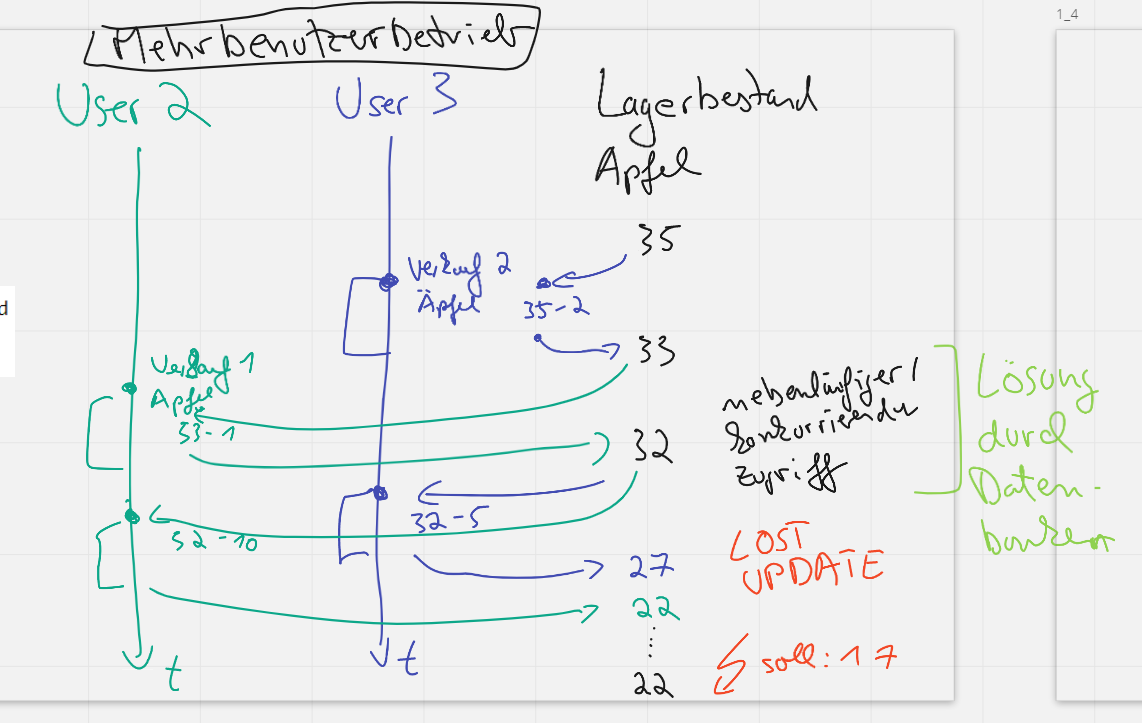 1_4
Mehrbenutzerbetrieb
User 2
User 3
Lagerbestand
Apfel
35
Verkauf 2
Äpfel
35-2
d
33
Verkauf 1
Apfel
33-1
32
nebenläufiger /
konkurrierender
Zugriff
Lösung
durch
Daten-
banken
32-5
32-10
LOST
UPDATE
27
22
22
soll: 17
t
t